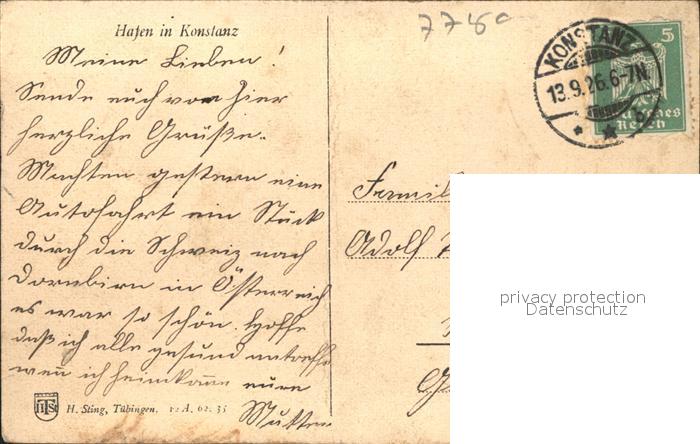 Hafen in Konstanz
7780
Meine Lieben!
Sende euch von hier
herzliche Grüße.
Machten gestern eine
Autofahrt ein Stück
durch die Schweiz nach
Dornbirn in Österreich
es war so schön. Hoffe
daß ich alle gesund antreffe
wenn ich heimkomme eure
Mutter
H. Sting, Tübingen. 12 A. 62. 35
KONSTANZ
13.9.26.6-7N.
5
Deutsches
Reich
Famil
Adolf
privacy protection
Datenschutz